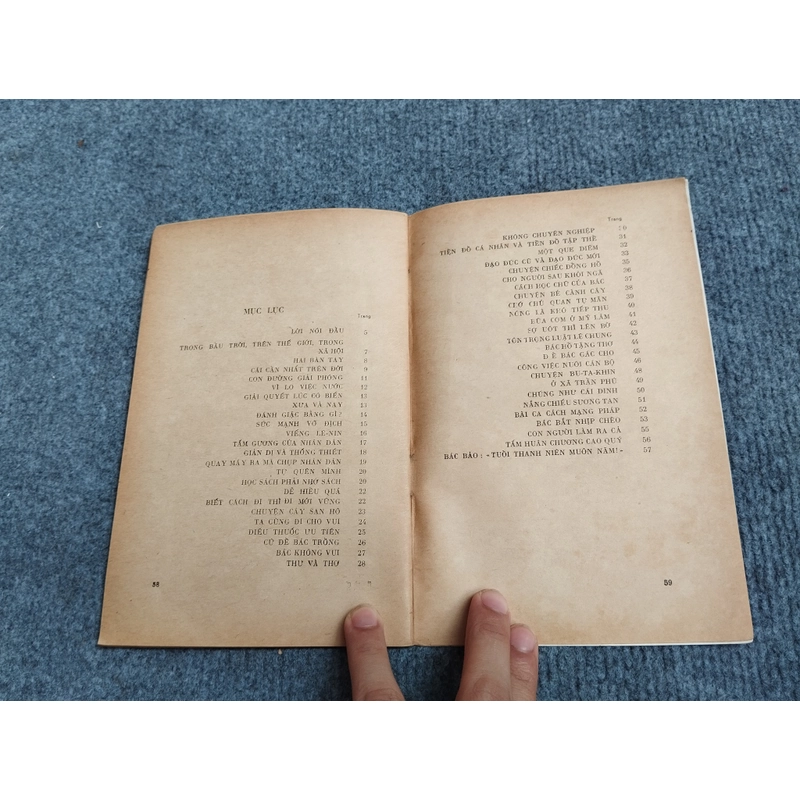 MỤC LỤC
Trang
LỜI NÓI ĐẦU 5
TRONG BẦU TRỜI, TRÊN THẾ GIỚI, TRONG
XÃ HỘI 7
HAI BÀN TAY 8
CÁI CẦN NHẤT TRÊN ĐỜI 9
CON ĐƯỜNG GIẢI PHÓNG 11
VÌ LO VIỆC NƯỚC 12
GIẢI QUYẾT LÚC CÓ BIẾN 13
XƯA VÀ NAY 13
ĐÁNH GIẶC BẰNG GÌ? 14
SỨC MẠNH VÔ ĐỊCH 15
VIẾNG LÊ-NIN 16
TẤM GƯƠNG CỦA NHÂN DÂN 17
GIẢN DỊ VÀ THỐNG THIẾT 18
QUAY MÁY RA MÀ CHỤP NHÂN DÂN 19
TỰ QUÊN MÌNH 20
HỌC SÁCH PHẢI NHỚ SÁCH 21
ĐỂ HIỆU QUẢ 22
BIẾT CÁCH ĐI THÌ ĐI MỚI VỮNG 22
CHUYỆN CÂY SAN HÔ 23
TA CŨNG ĐI CHO VUI 24
ĐIẾU THUỐC ƯU TIÊN 25
CỨ ĐỂ BÁC TRỒNG 26
BÁC KHÔNG VUI 27
THƯ VÀ THƠ 28
58
Trang
KHÔNG CHUYÊN NGHIỆP
TIỀN ĐỒ CÁ NHÂN VÀ TIỀN ĐỒ TẬP THỂ 31
MỘT QUE DIÊM 32
ĐẠO ĐỨC CŨ VÀ ĐẠO ĐỨC MỚI 33
CHUYỆN CHIẾC ĐỒNG HỒ 35
CHO NGƯỜI SAU KHỎI NGÃ 36
CÁCH HỌC CHỮ CỦA BÁC 37
CHUYỆN BẺ CÀNH CÂY 38
CHỚ CHỦ QUAN TỰ MÃN 39
NÓNG LÀ KHÓ TIẾP THU 40
BỮA CƠM Ở MỸ LÂM 41
SỢ ƯỚT THÌ LÊN BỜ 42
TÔN TRỌNG LUẬT LỆ CHUNG 43
BÁC HỒ TẶNG THƠ 44
ĐỂ BÁC GÁC CHO 45
CÔNG VIỆC NUÔI CÁN BỘ 46
CHUYỆN BU-TA-KHIN 48
Ở XÃ TRẦN PHÚ 49
CHÚNG NHƯ CÁI ĐINH 50
NẮNG CHIẾU SƯƠNG TAN 51
BÀI CA CÁCH MẠNG PHÁP 52
BÁC BẮT NHỊP CHÈO 53
CON NGƯỜI LÀM RA CẢ 55
TẤM HUÂN CHƯƠNG CAO QUÝ 56
BÁC BẢO: «TUỔI THANH NIÊN MUÔN NĂM!» 57
59